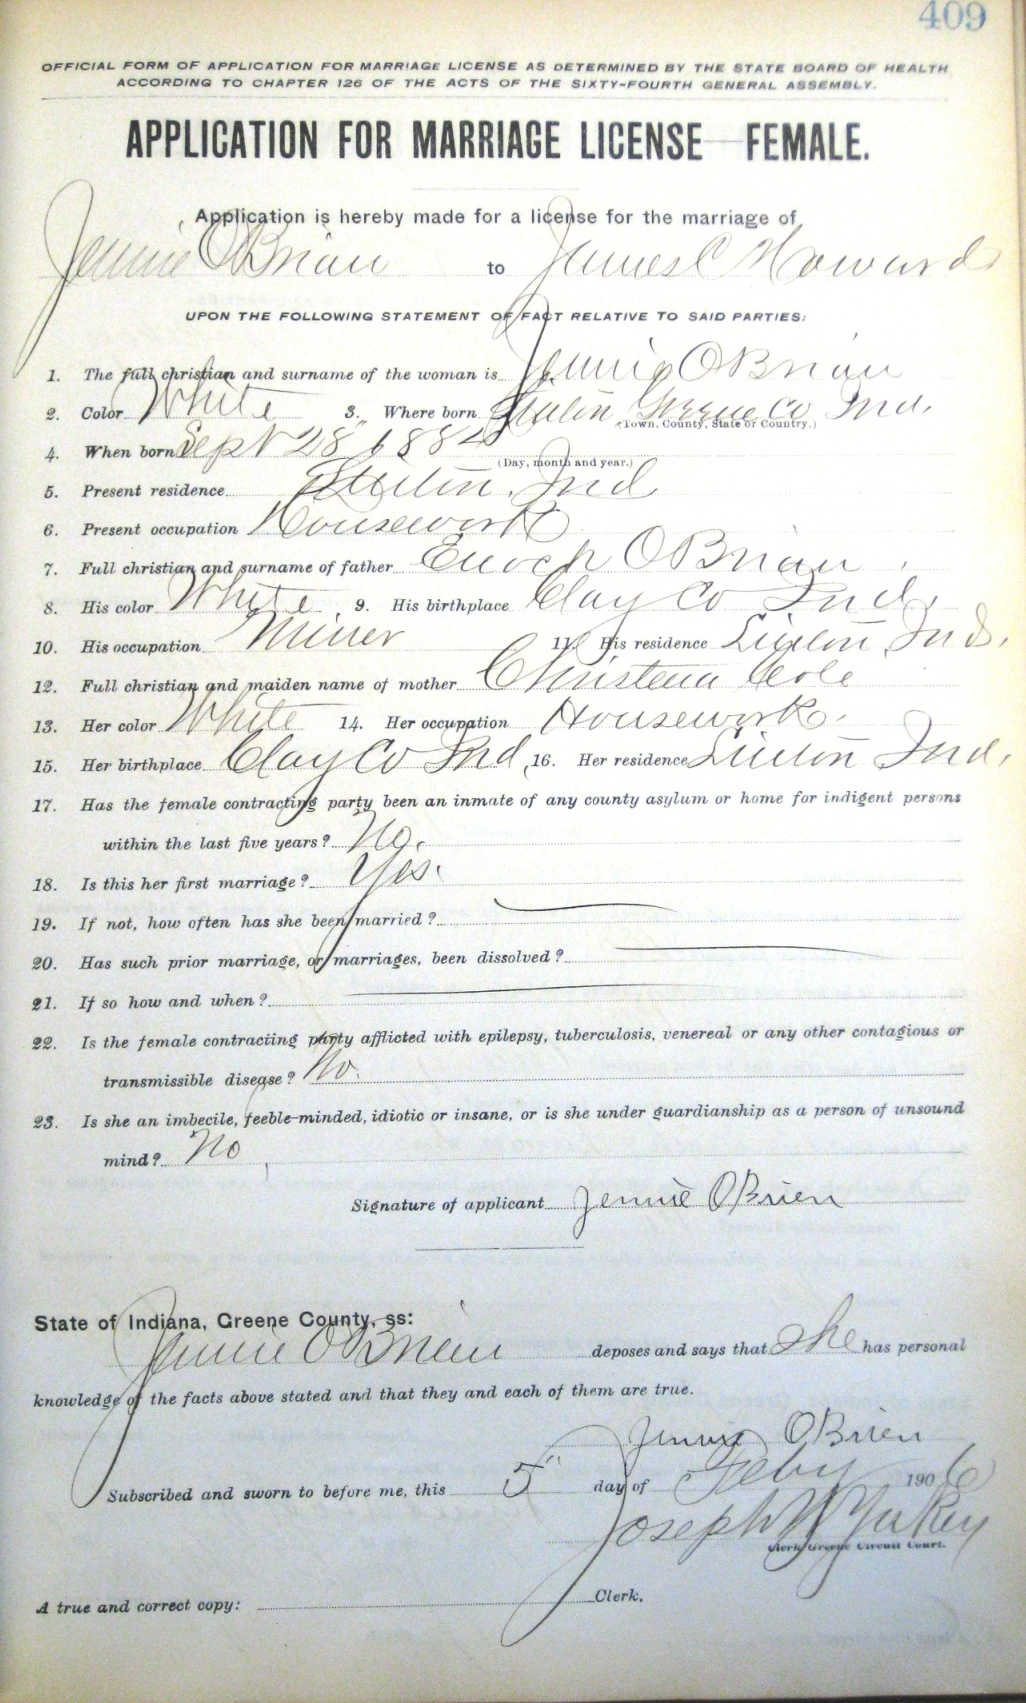 409
OFFICIAL FORM OF APPLICATION FOR MARRIAGE LICENSE AS DETERMINED BY THE STATE BOARD OF HEALTH
ACCORDING TO CHAPTER 126 OF THE ACTS OF THE SIXTY-FOURTH GENERAL ASSEMBLY.
APPLICATION FOR MARRIAGE LICENSE FEMALE.
Application is hereby made for a license for the marriage of
Jennie OBrian to James C Howard
UPON THE FOLLOWING STATEMENT OF FACT RELATIVE TO SAID PARTIES:
1. The full christian and surname of the woman is Jennie OBrian
2. Color White 3. Where born Linton Greene Co Ind.
(Town. County, State or Country.)
4. When born Sept 28" 1884
(Day, month and year.)
5. Present residence Linton. Ind
6. Present occupation Housework
7. Full christian and surname of father Enoch OBrian
8. His color White 9. His birthplace Clay Co Ind.
10. His occupation Miner 11. His residence Linton, Ind.
12. Full christian and maiden name of mother Christena Cole
13. Her color White 14. Her occupation Housework.
15. Her birthplace Clay Co Ind, 16. Her residence Linton Ind,
17. Has the female contracting party been an inmate of any county asylum or home for indigent persons
within the last five years? No.
18. Is this her first marriage? Yes.
19. If not, how often has she been married?
20. Has such prior marriage, or marriages, been dissolved?
21. If so how and when?
22. Is the female contracting party afflicted with epilepsy, tuberculosis, venereal or any other contagious or
transmissible disease? No.
23. Is she an imbecile, feeble-minded, idiotic or insane, or is she under guardianship as a person of unsound
mind? No
Signature of applicant Jennie OBrien
State of Indiana, Greene County, ss:
Jennie OBrien deposes and says that She has personal
knowledge of the facts above stated and that they and each of them are true.
Jennie OBrien
Subscribed and sworn to before me, this 5" day of Feby 1906
Joseph W Yakey
Clerk Greene Circuit Court.
A true and correct copy: Clerk.